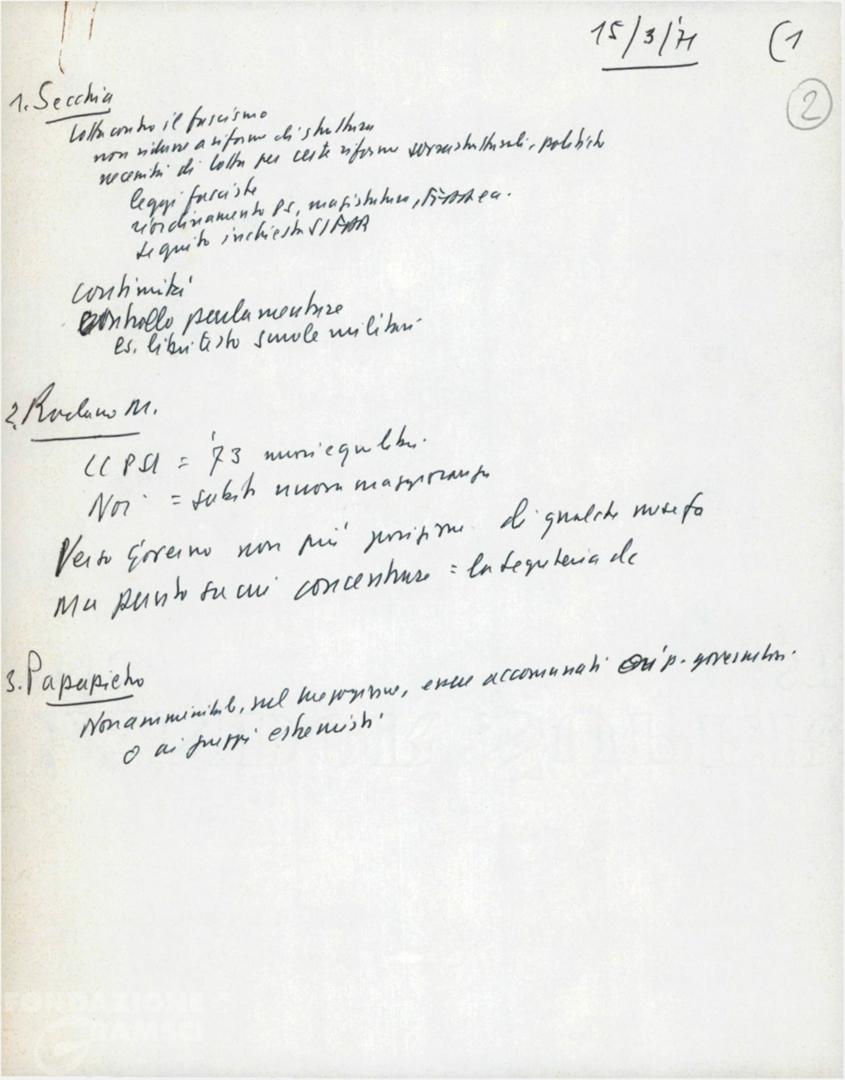 15/3/71 (1
2
1. Secchia
lotta contro il fascismo
non ridurre a riforme di struttura
necessità di lotta per certe riforme sovrastrutturali, politiche
leggi fasciste
riordinamento PS, magistratura,
seguito inchiesta SIFAR
continuità
controllo parlamentare
es. libri testo scuole militari
2. Rodano M.
CC PSI = '73 nuovi equilibri.
Noi = subito nuova maggioranza
Verso governo non più posizione di qualche mese fa
Ma punto su cui concentrare = la segreteria dc
3. Papapietro
Non ammissibile, nel mezzogiorno, essere accomunati p. governativi.
o ai gruppi estremisti
FONDAZIONE
GRAMSCI